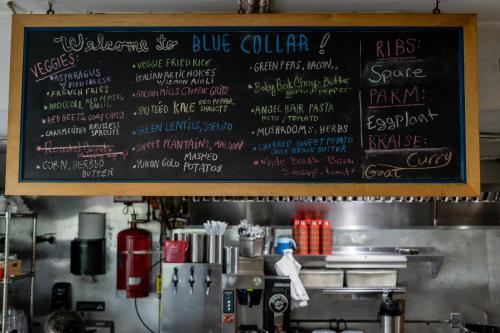 Welcome to BLUE COLLAR!
VEGGIES:
•ASPARAGUS
w/ BLEU CHEESE
•FRENCH FRIES
•BROCCOLI, RED PEPPER, GARLIC
•RED BEETS, GOAT CHEESE
•CARAMELIZED BRUSSELS SPROUTS
•CORN, HERBED BUTTER
•VEGGIE FRIED RICE
•ITALIAN ARTICHOKES
w/ LEMON AIOLI
•ANSON MILLS CHEESE GRITS
•SAUTÉED KALE RED PEPPER, SHALLOTS
•GREEN LENTILS, SOFRITO
•SWEET PLANTAINS, MALDON
•YUKON GOLD MASHED POTATOS
•GREEN PEAS, BACON,
•Baby Bok Choy, Butter
•ANGEL HAIR PASTA
PISTO / TOMATO
•MUSHROOMS, HERBS
•CHARRED SWEET POTATO
CHILE BROWN BUTTER
•White Beans, Basil
Sausage, tomato
RIBS:
Spare
PARM:
Eggplant
BRAISE:
Goat Curry